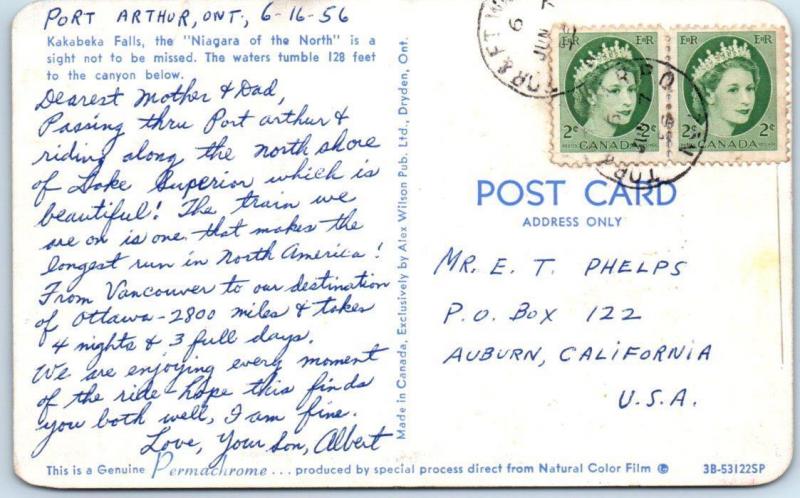 PORT ARTHUR, ONT., 6-16-56
Kakabeka Falls, the "Niagara of the North" is a
sight not to be missed. The waters tumble 128 feet
to the canyon below.
Dearest Mother & Dad,
Passing thru Port arthur &
riding along the north shore
of Lake Superior which is
beautiful! The train we
are on is one that makes the
longest run in North America!
From Vancouver to our destination
of Ottawa - 2800 miles & takes
4 nights & 3 full days.
We are enjoying every moment
of the ride - hope this finds
you both well, I am fine.
Love, Your Son, Albert
This is a Genuine Permachrome ... produced by special process direct from Natural Color Film ©
3B-53122SP
Made in Canada, Exclusively by Alex Wilson Pub. Ltd., Dryden, Ont.
EIIR EIIR
2¢ CANADA 2¢
EIIR EIIR
2¢ CANADA 2¢
TOR & FT W
JUN
TOR
POST CARD
ADDRESS ONLY
MR. E. T. PHELPS
P.O. BOX 122
AUBURN, CALIFORNIA
U.S.A.